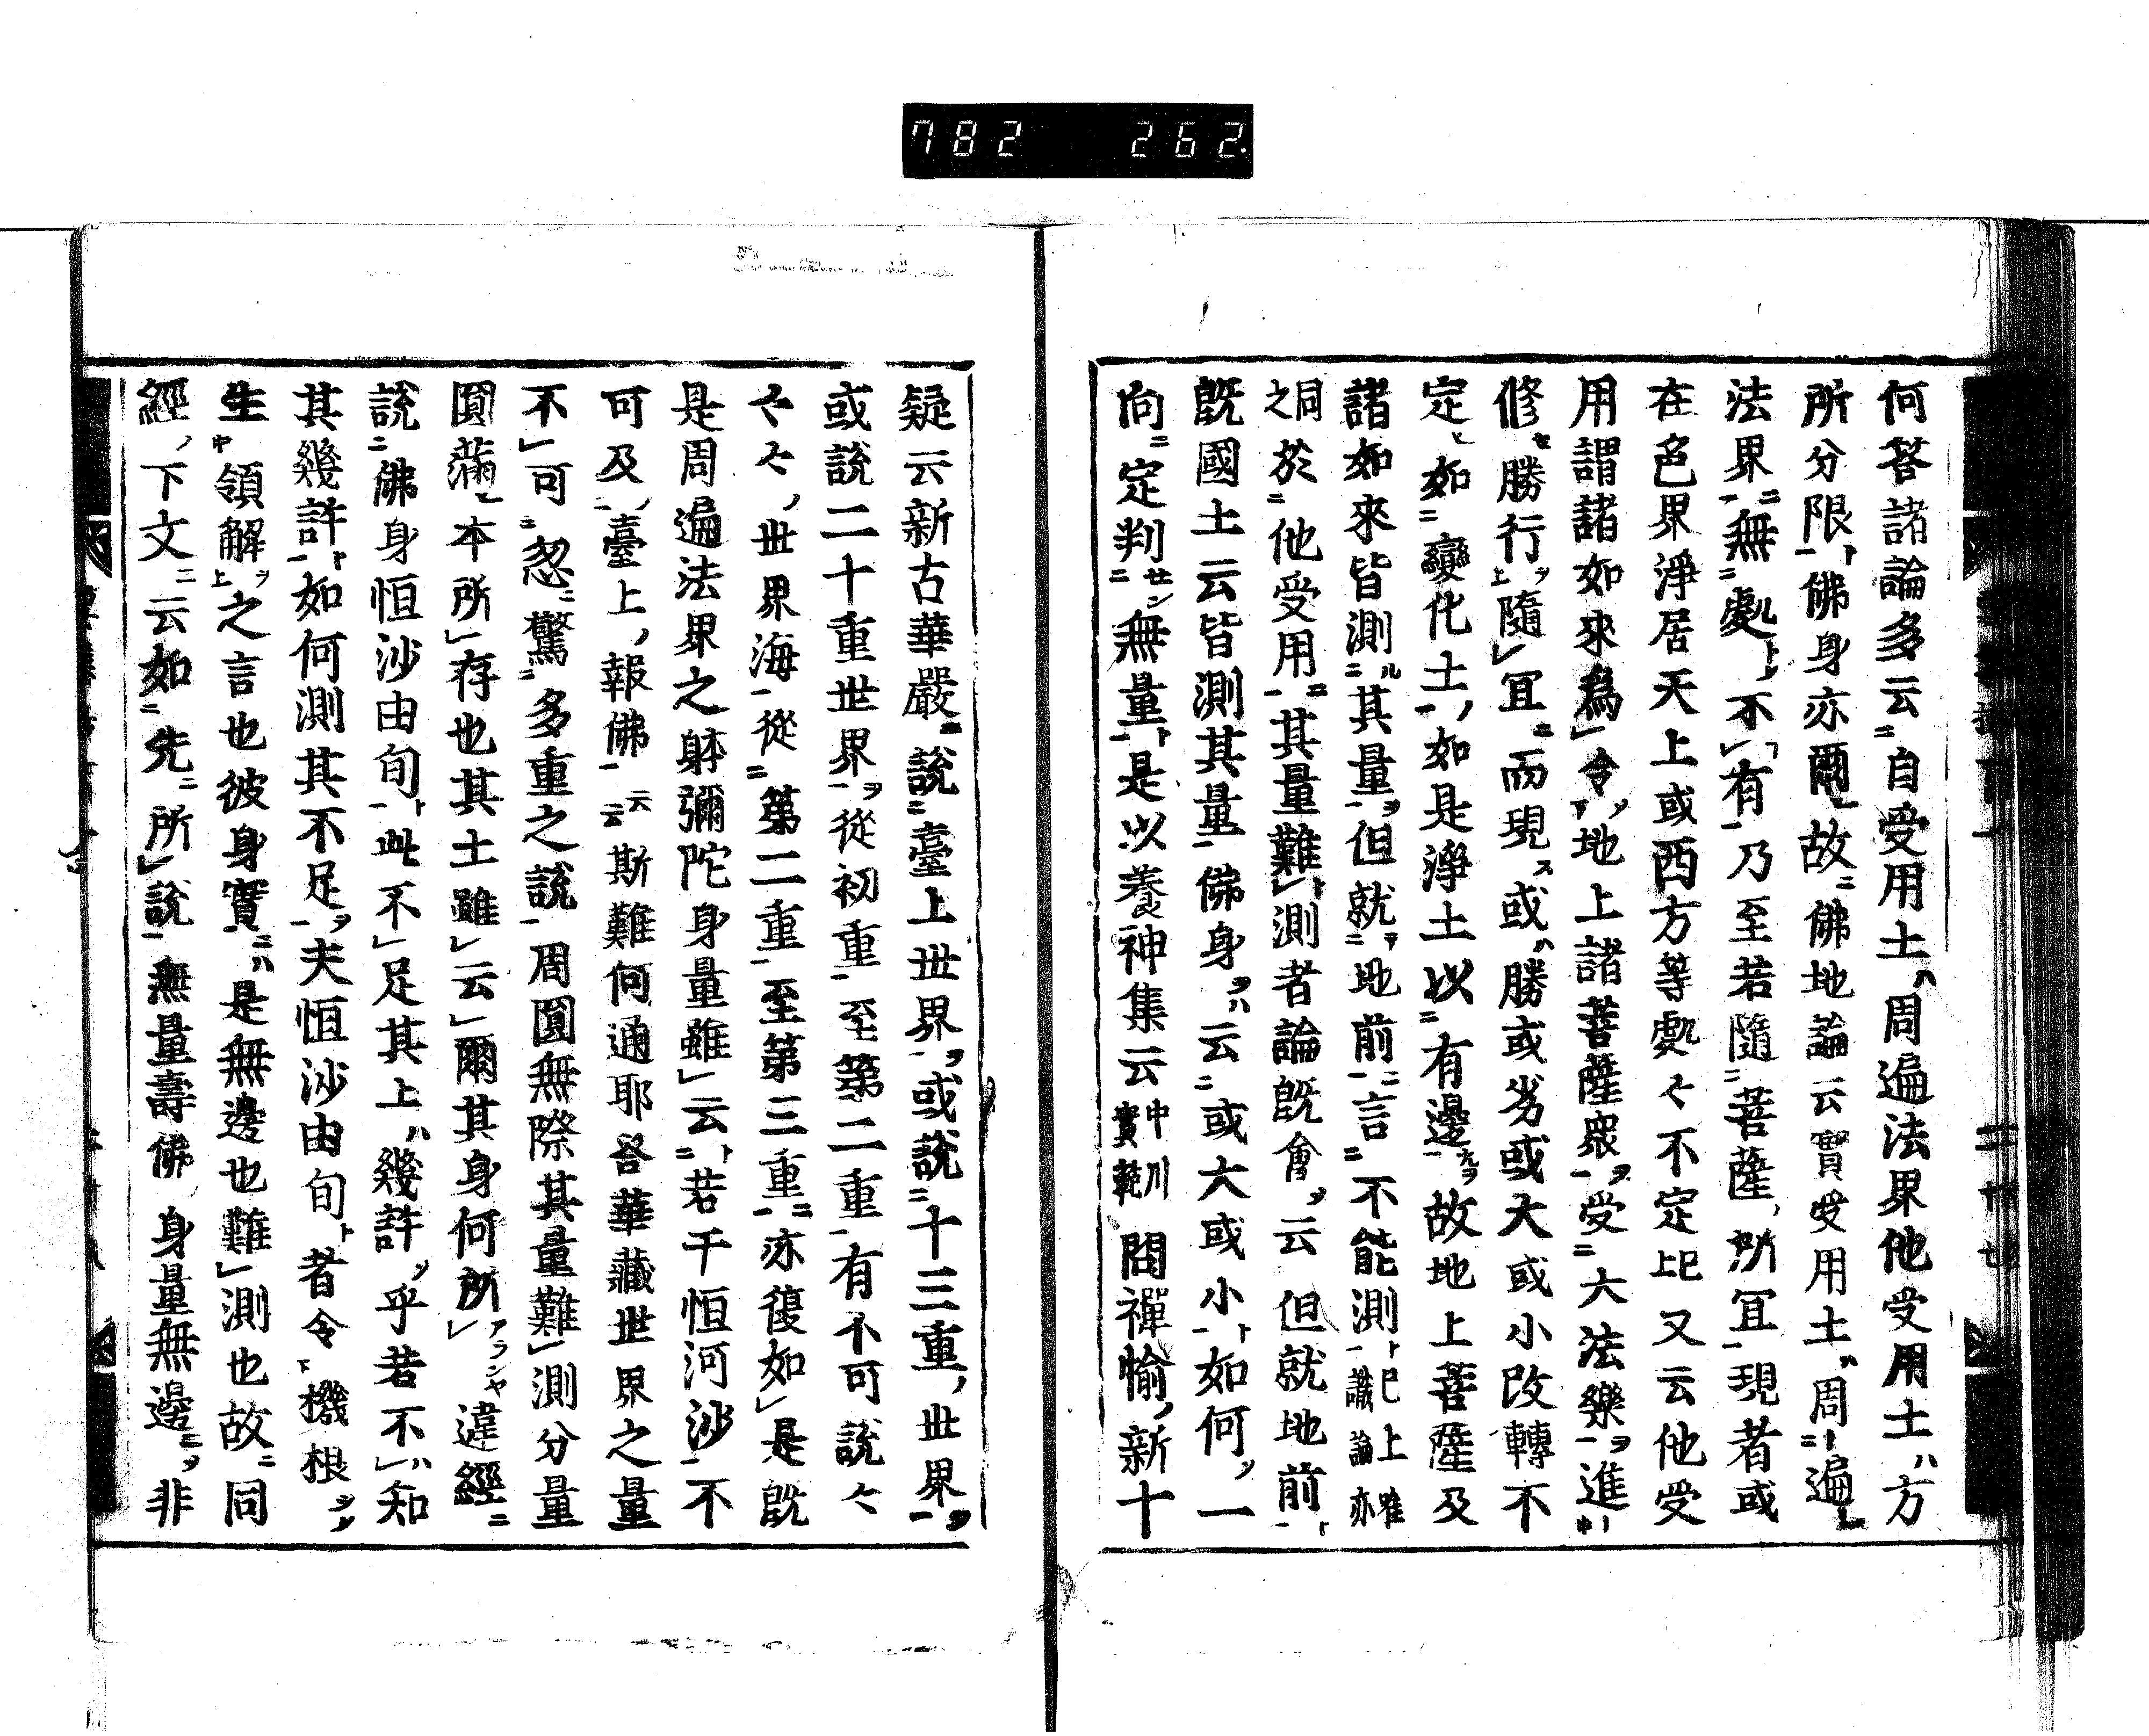 782 262
何答諸論多云自受用土ハ周遍法界他受用土ハ方
所分限ト佛身亦爾故佛地論云實受用土ハ周遍
法界無處トシテ不有乃至若隨菩薩所冝現者或
在色界淨居天上或西方等處々不定已上又云他受
用謂諸如來爲令地上諸菩薩衆ヲ受大法樂ヲ進
修セ勝行ヲ隨冝而現ス或ハ勝或劣或大或小改轉不
定如變化土如是淨土以有邊ナルヲ故地上菩薩及
諸如來皆測ル其量ヲ但就テ地前言不能測ト已上唯識論亦
同之於他受用其量難ト測者論旣會ヲ云但就地前ト
旣國土云皆測其量佛身ヲハ云或大或小ト如何ヲ一
向定判センニ無量ト是以養神集云中川實範問禪愉新十
疑云新古華嚴說臺上世界ヲ或說十三重世界ヲ
或說二十重世界ヲ從初重至第二重有不可說々
々々世界海從第二重至第三重亦復如是旣
是周遍法界之躰彌陀身量雖云ト若干恒河沙不
可及臺上報佛云云斯難何通耶答華藏世界之量
不可忽驚多重之說周圓無際其量難測分量
圓滿本所存也其土雖云爾其身何所アラシヤ違經
說佛身恒沙由旬ト此不足其上ハ幾許ソ乎若不ハ知
其幾許ト如何測其不足ヲ夫恒沙由旬ト者令機根ヲシテ
生領解ヲ之言也彼身實ニハ是無邊也難測也故同
經ノ下文云如先所說無量壽佛身量無邊ニシテ非